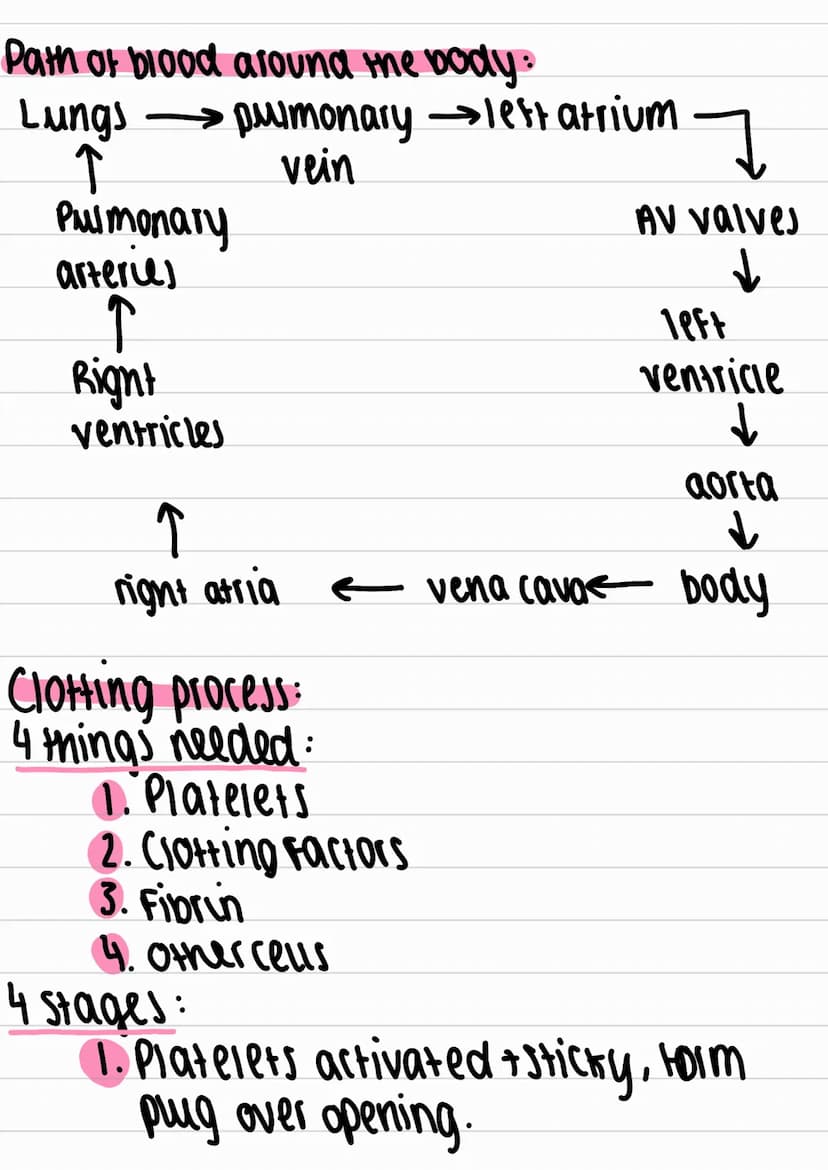 Path of blood around the body:
Lungs → pulmonary → left atrium
vein
↑
Pulmonary AV valves
arteries ↓
↑ left
Right ventricle
ventricles ↓
aorta
↑ ↓
right atria ← vena cava ← body
Clotting process:
4 things needed:
1. Platelets
2. Clotting Factors
3. Fibrin
4. Other cells
4 stages:
1. Platelets activated + sticky, form
plug over opening.